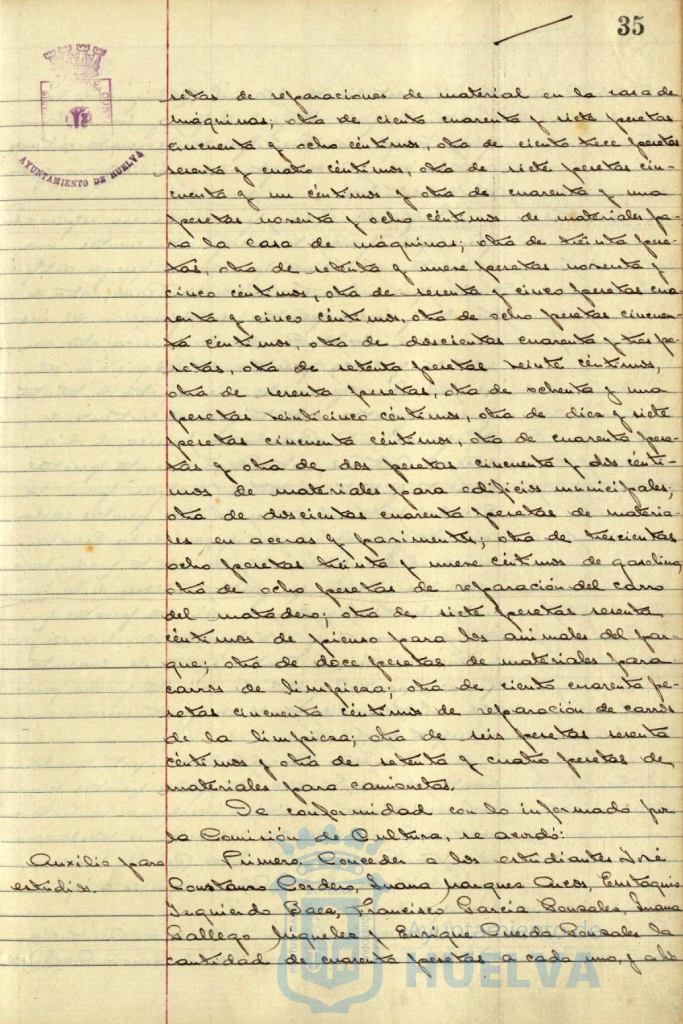 35
AYUNTAMIENTO DE HUELVA
setas de reparaciones de material en la casa de
máquinas; otra de ciento cuarenta y siete pesetas
cincuenta y ocho céntimos, otra de ciento trece pesetas
sesenta y cuatro céntimos, otra de siete pesetas cin-
cuenta y un céntimos y otra de cuarenta y una
pesetas noventa y ocho céntimos de materiales pa-
ra la casa de máquinas; otra de treinta pese-
tas, otra de setenta y nueve pesetas noventa y
cinco céntimos, otra de sesenta y cinco pesetas cua-
renta y cinco céntimos, otra de ocho pesetas cincuen-
ta céntimos, otra de doscientas cuarenta y tres pe-
setas, otra de setenta pesetas veinte céntimos,
otra de sesenta pesetas, otra de ochenta y una
pesetas veinticinco céntimos, otra de diez y siete
pesetas cincuenta céntimos, otra de cuarenta pese-
tas y otra de dos pesetas cincuenta y dos cénti-
mos de materiales para edificios municipales;
otra de doscientas cuarenta pesetas de materia-
les en aceras y pavimentos; otra de trescientas
ocho pesetas treinta y nueve céntimos de gasolina,
otra de ocho pesetas de reparación del carro
del matadero; otra de siete pesetas sesenta
céntimos de pienso para los animales del par-
que; otra de doce pesetas de materiales para
carros de limpieza; otra de ciento cuarenta pe-
setas cincuenta céntimos de reparación de carros
de la limpieza; otra de seis pesetas sesenta
céntimos y otra de setenta y cuatro pesetas de
materiales para camionetas.
De conformidad con lo informado por
la Comisión de Cultura, se acordó:
Auxilio para
estudios.
Primero. Conceder a los estudiantes José
Constanzo Cordero, Juana Marquez Arcos, Eustaquio
Izquierdo Baez, Francisco García Gonzalez, Juana
Gallego Miguelez y Enrique Oneida Gonzalez la
cantidad de cuarenta pesetas a cada uno, y a
Ayuntamiento de
HUELVA